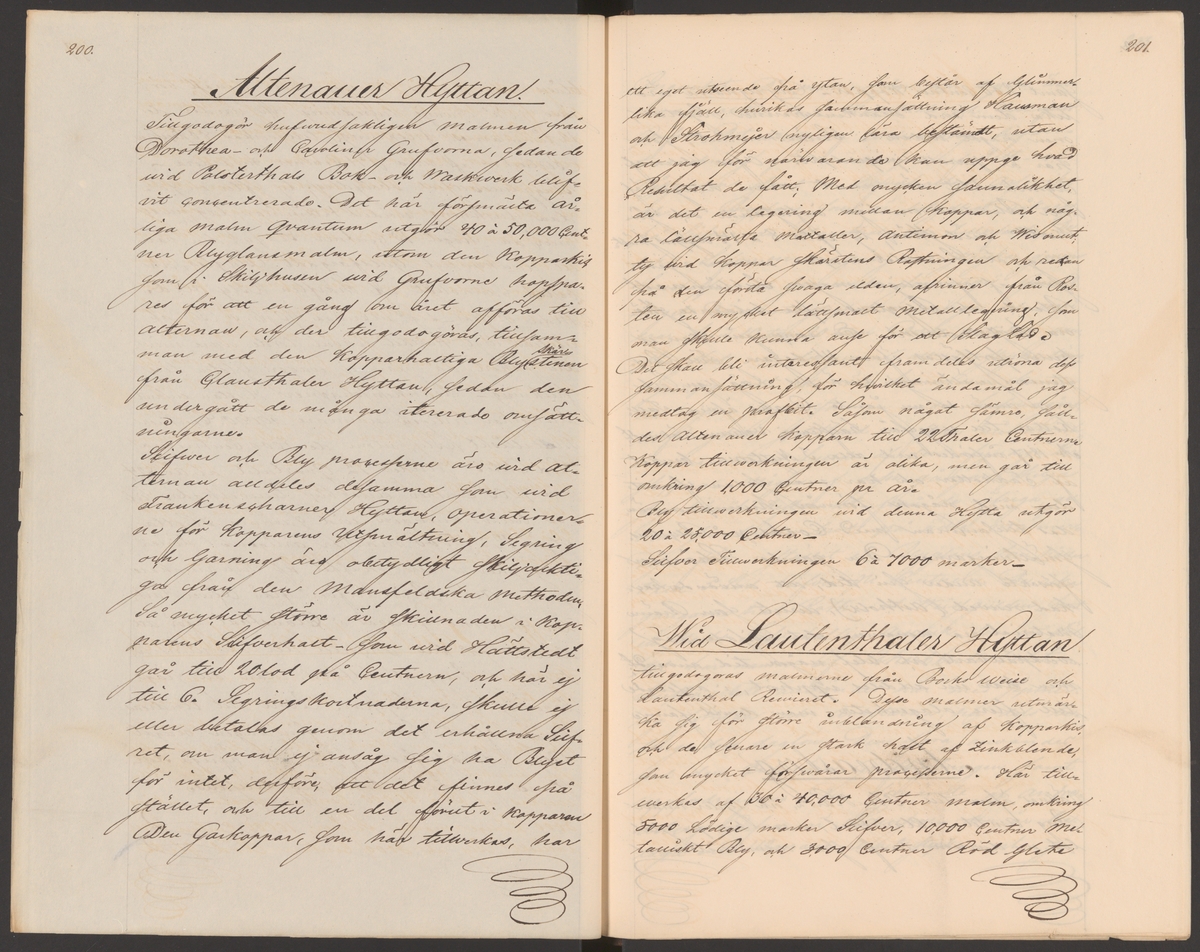 200.
Altenauer Hyttan.
Tillgodogör hufwudsakligen malmen från
Dorothea- och Caroliner Grufvorna, sedan de
wid Polsterthals Bok- och Waskwerk blif-
vit concentrerade. Det här försmälta år-
liga malm Quantum utgör 40 à 50,000 Cent-
ner Blyglansmalm, utom den Kopparkis
som i Skiljhusen wid Grufvorne hopspa-
res för att en gång om året afföras till
Alternau, och der tillgodogöras, tillsam-
man med den Kopparhaltiga Bly Skär
stenen
från Clausthaler Hyttan, sedan den
undergått de många itererade omsätt-
ningarne.
Silfwer och Bly processerne äro wid Al-
ternau alldeles desamma som wid
Frankensharner Hyttan, operationer-
ne för Kopparens Utsmältning, Segring
och Garning äro obetydligt skiljakti-
ga från den Mansfeldska Methoden,
Så mycket större är skillnaden i Kop-
parens Silfverhalt - som wid Hättstedt
går till 20 lod på Centnern, och här ej
till 6. Segringskostnaderna, skulle ej
eller betalas genom det erhållna Silf-
ret, om man ej ansåg sig ha Blyet
för intet, derföre, att det finnes på
stället, och till en del förut i Kopparen
Den Garkoppar, som här tillwerkas, har
201.
ett eget utseende på ytan, som består af Glimmer
lika fjäll, hwilkas sammansättning Hausman
och Strohmejer nyligen lära bestämt, utan
att jag för närvarande kan uppge hvad
Resultat de fått. Med mycken sannolikhet,
är det en legering mellan Koppar, och någ-
ra lättsmälta metaller, Antimon och Wismut,
ty wid Koppar Skärstens Rostningen och redan
på den första swaga elden, afrinner från Ros-
ten en mycket lättsmält Metallegering, som
man skulle kunna anse för ett Slaglod.
Det skall bli interessant framdeles utröna dess
sammansättning, för hvilket ändamål jag
medtog en profbit. Såsom något sämre, säll-
des Altenauer Kopparn till 22 Thaler Centnern
Koppar tillwerkningen är olika, men går till
omkring 1,000 Centner pr år.
Bly tillwerkningen wid denna Hytta utgör
20 à 25,000 Centner -
Silfver Tillwerkningen 6 à 7000 marker -
Wid Lautenthaler Hyttan
tillgodogöras malmerne från Bocks Weise och
Lautenthal Reviret. Dessa malmer utmär-
ka sig för större inblandning af Kopparkis,
och de senare en stark halt af Zinkblende
som mycket försvårar processerne. Här till-
werkes af 30 à 40,000 Centner malm, omkring
5000 Lödige marker Silfver, 10,000 Centner Me
talliskt Bly, och 3000 Centner Röd Glete